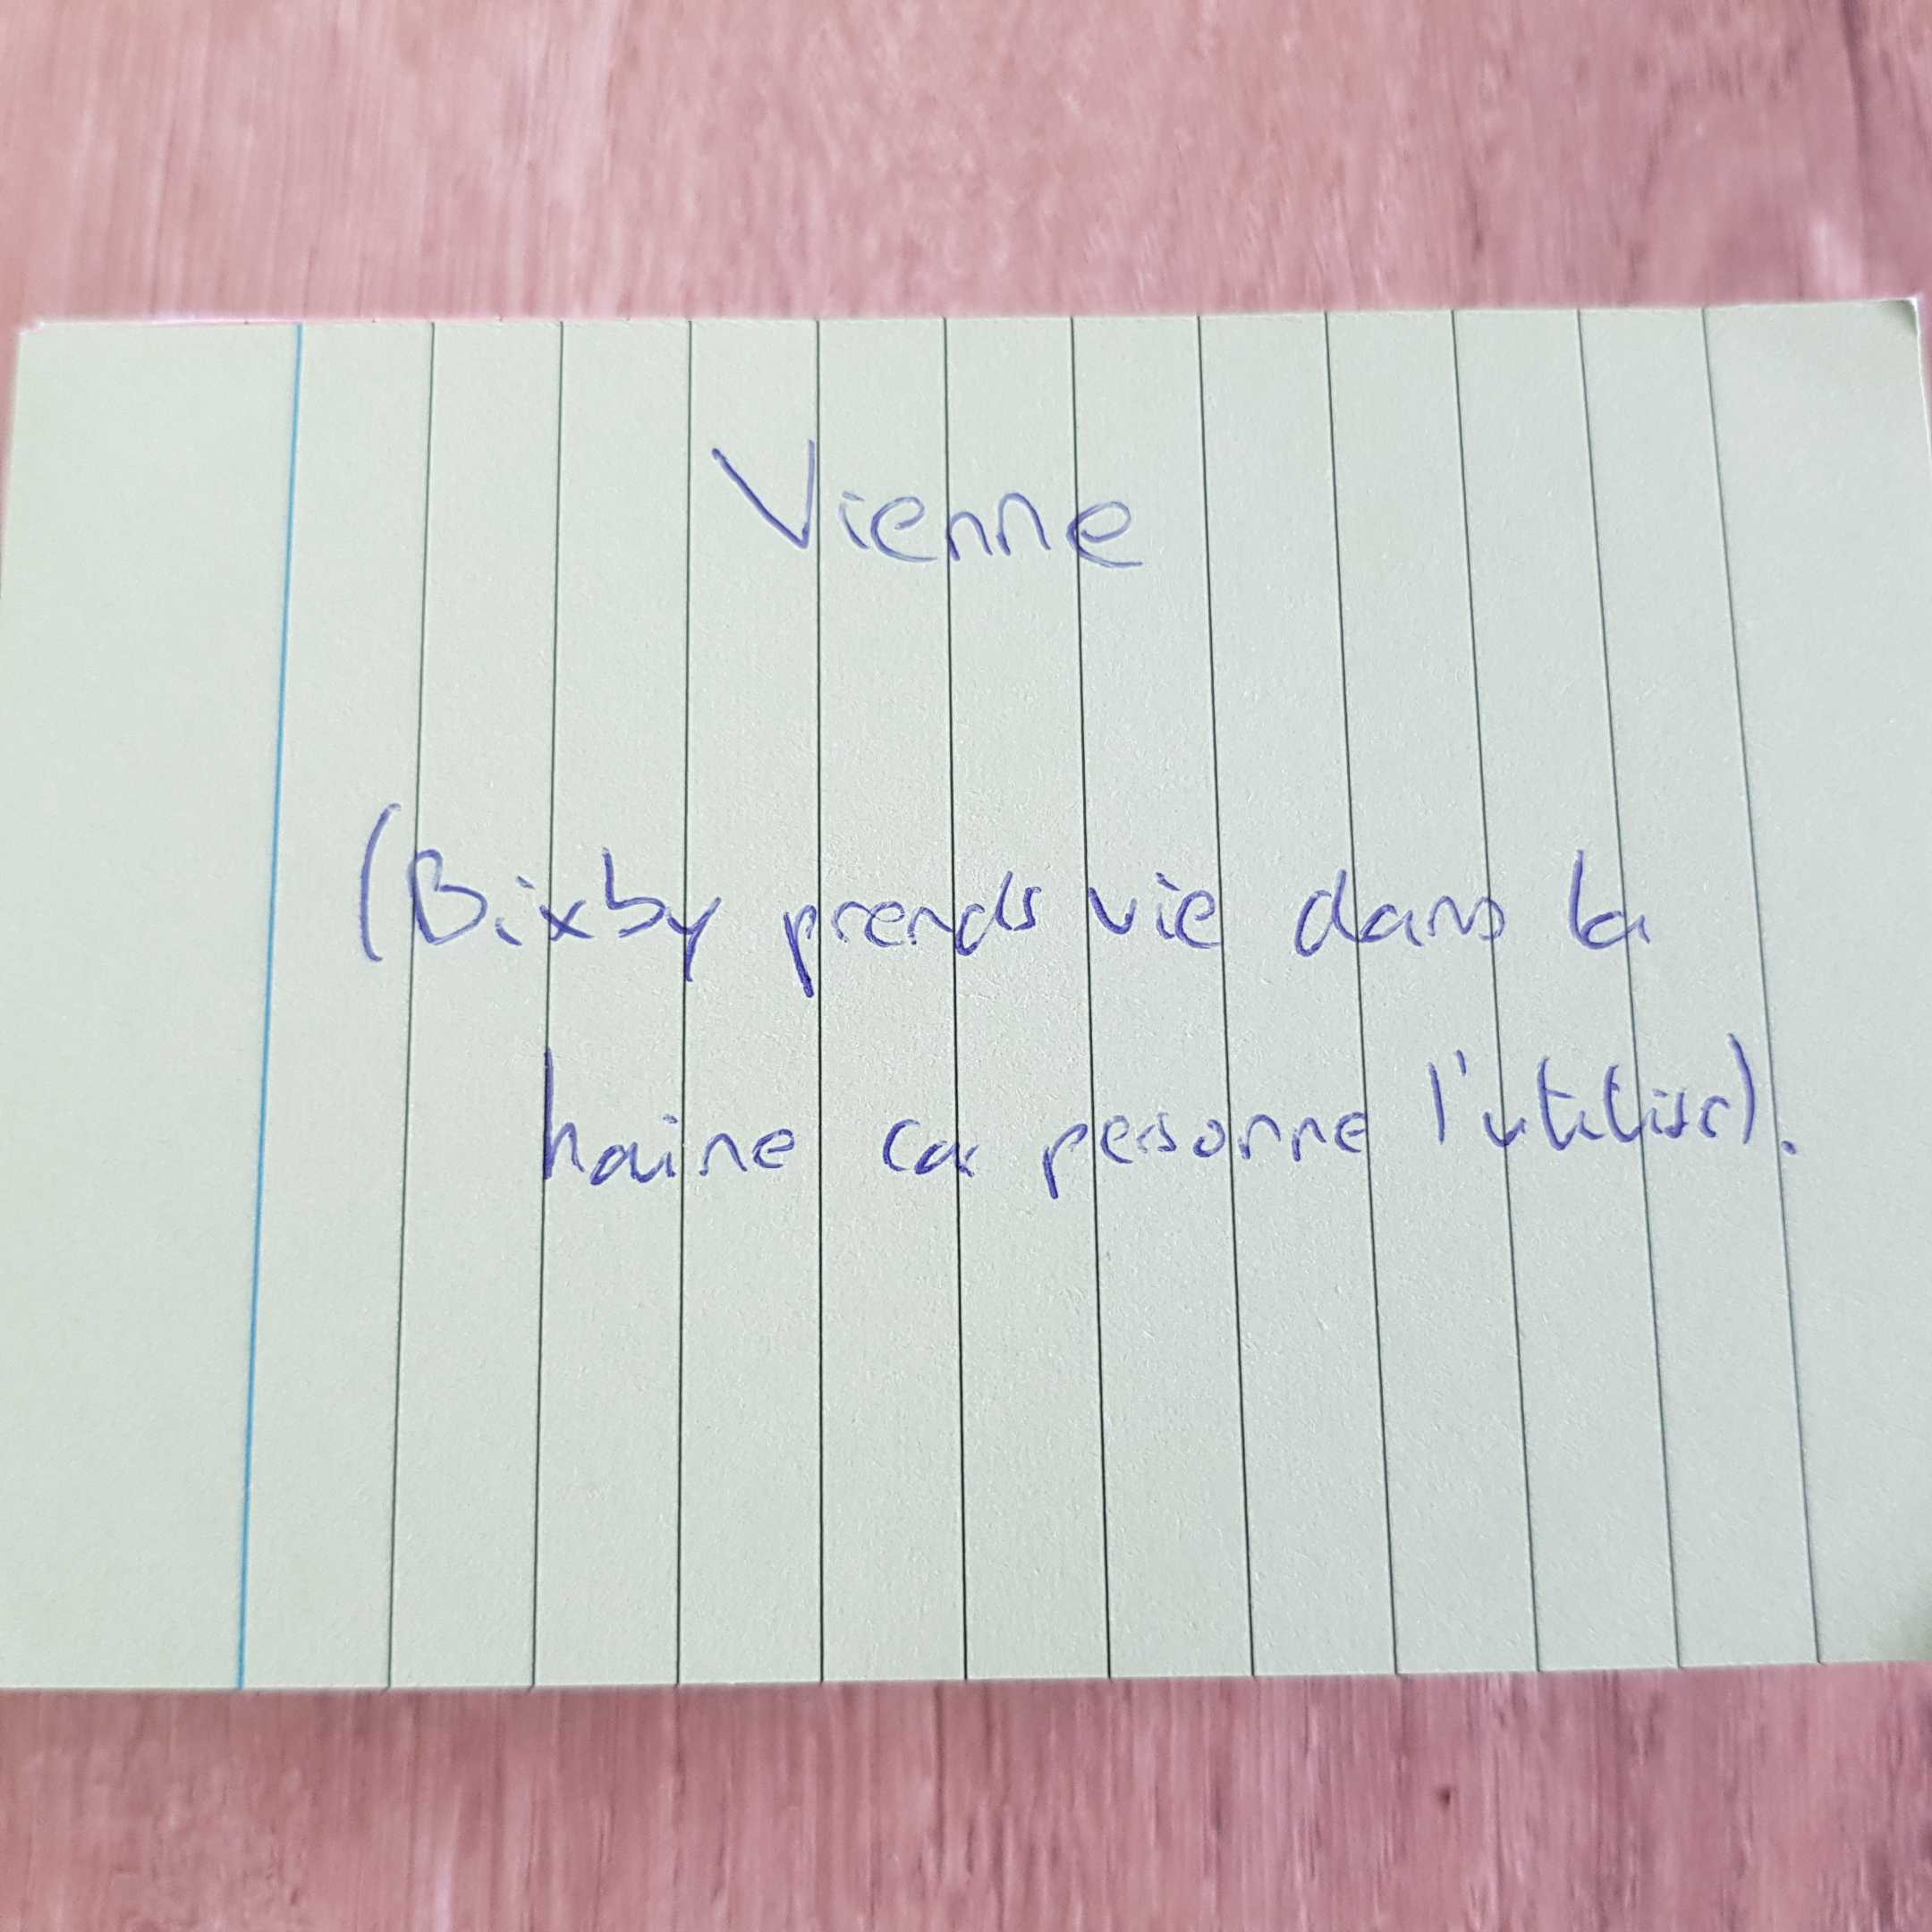 Vienne
(Bixby prends vie dans la
haine car personne l'utilise).